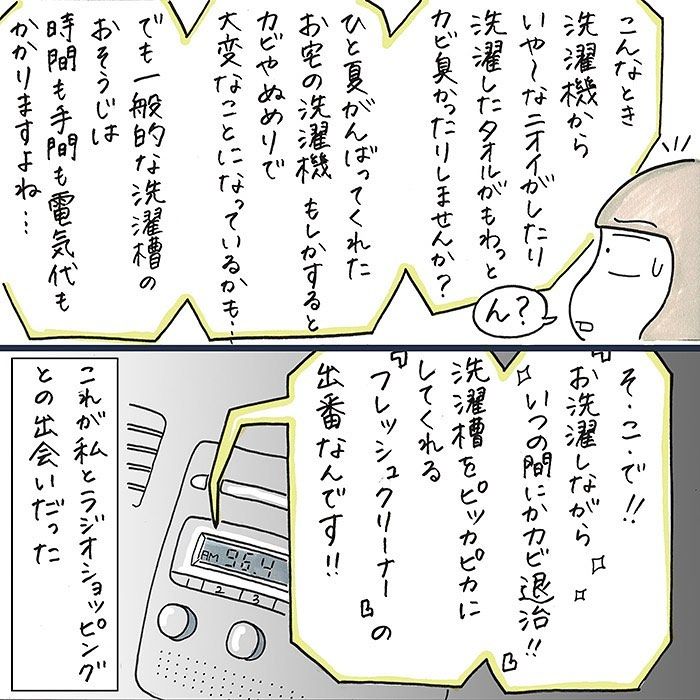 こんなとき
洗濯機から
いや〜なニオイがしたり
洗濯したタオルがもわっと
カビ臭かったりしませんか?
ひと夏がんばってくれた
お宅の洗濯機 もしかすると
カビやぬめりで
大変なことになっているかも…
でも一般的な洗濯槽の
おそうじは
時間も手間も電気代も
かかりますよね…
ん?
そ・こ・で!!
『お洗濯しながら
いつの間にかカビ退治!!』
洗濯槽をピッカピカに
してくれる
『フレッシュクリーナー』の
出番なんです!!
AM 96.4
2 3
これが私とラジオショッピング
との出会いだった